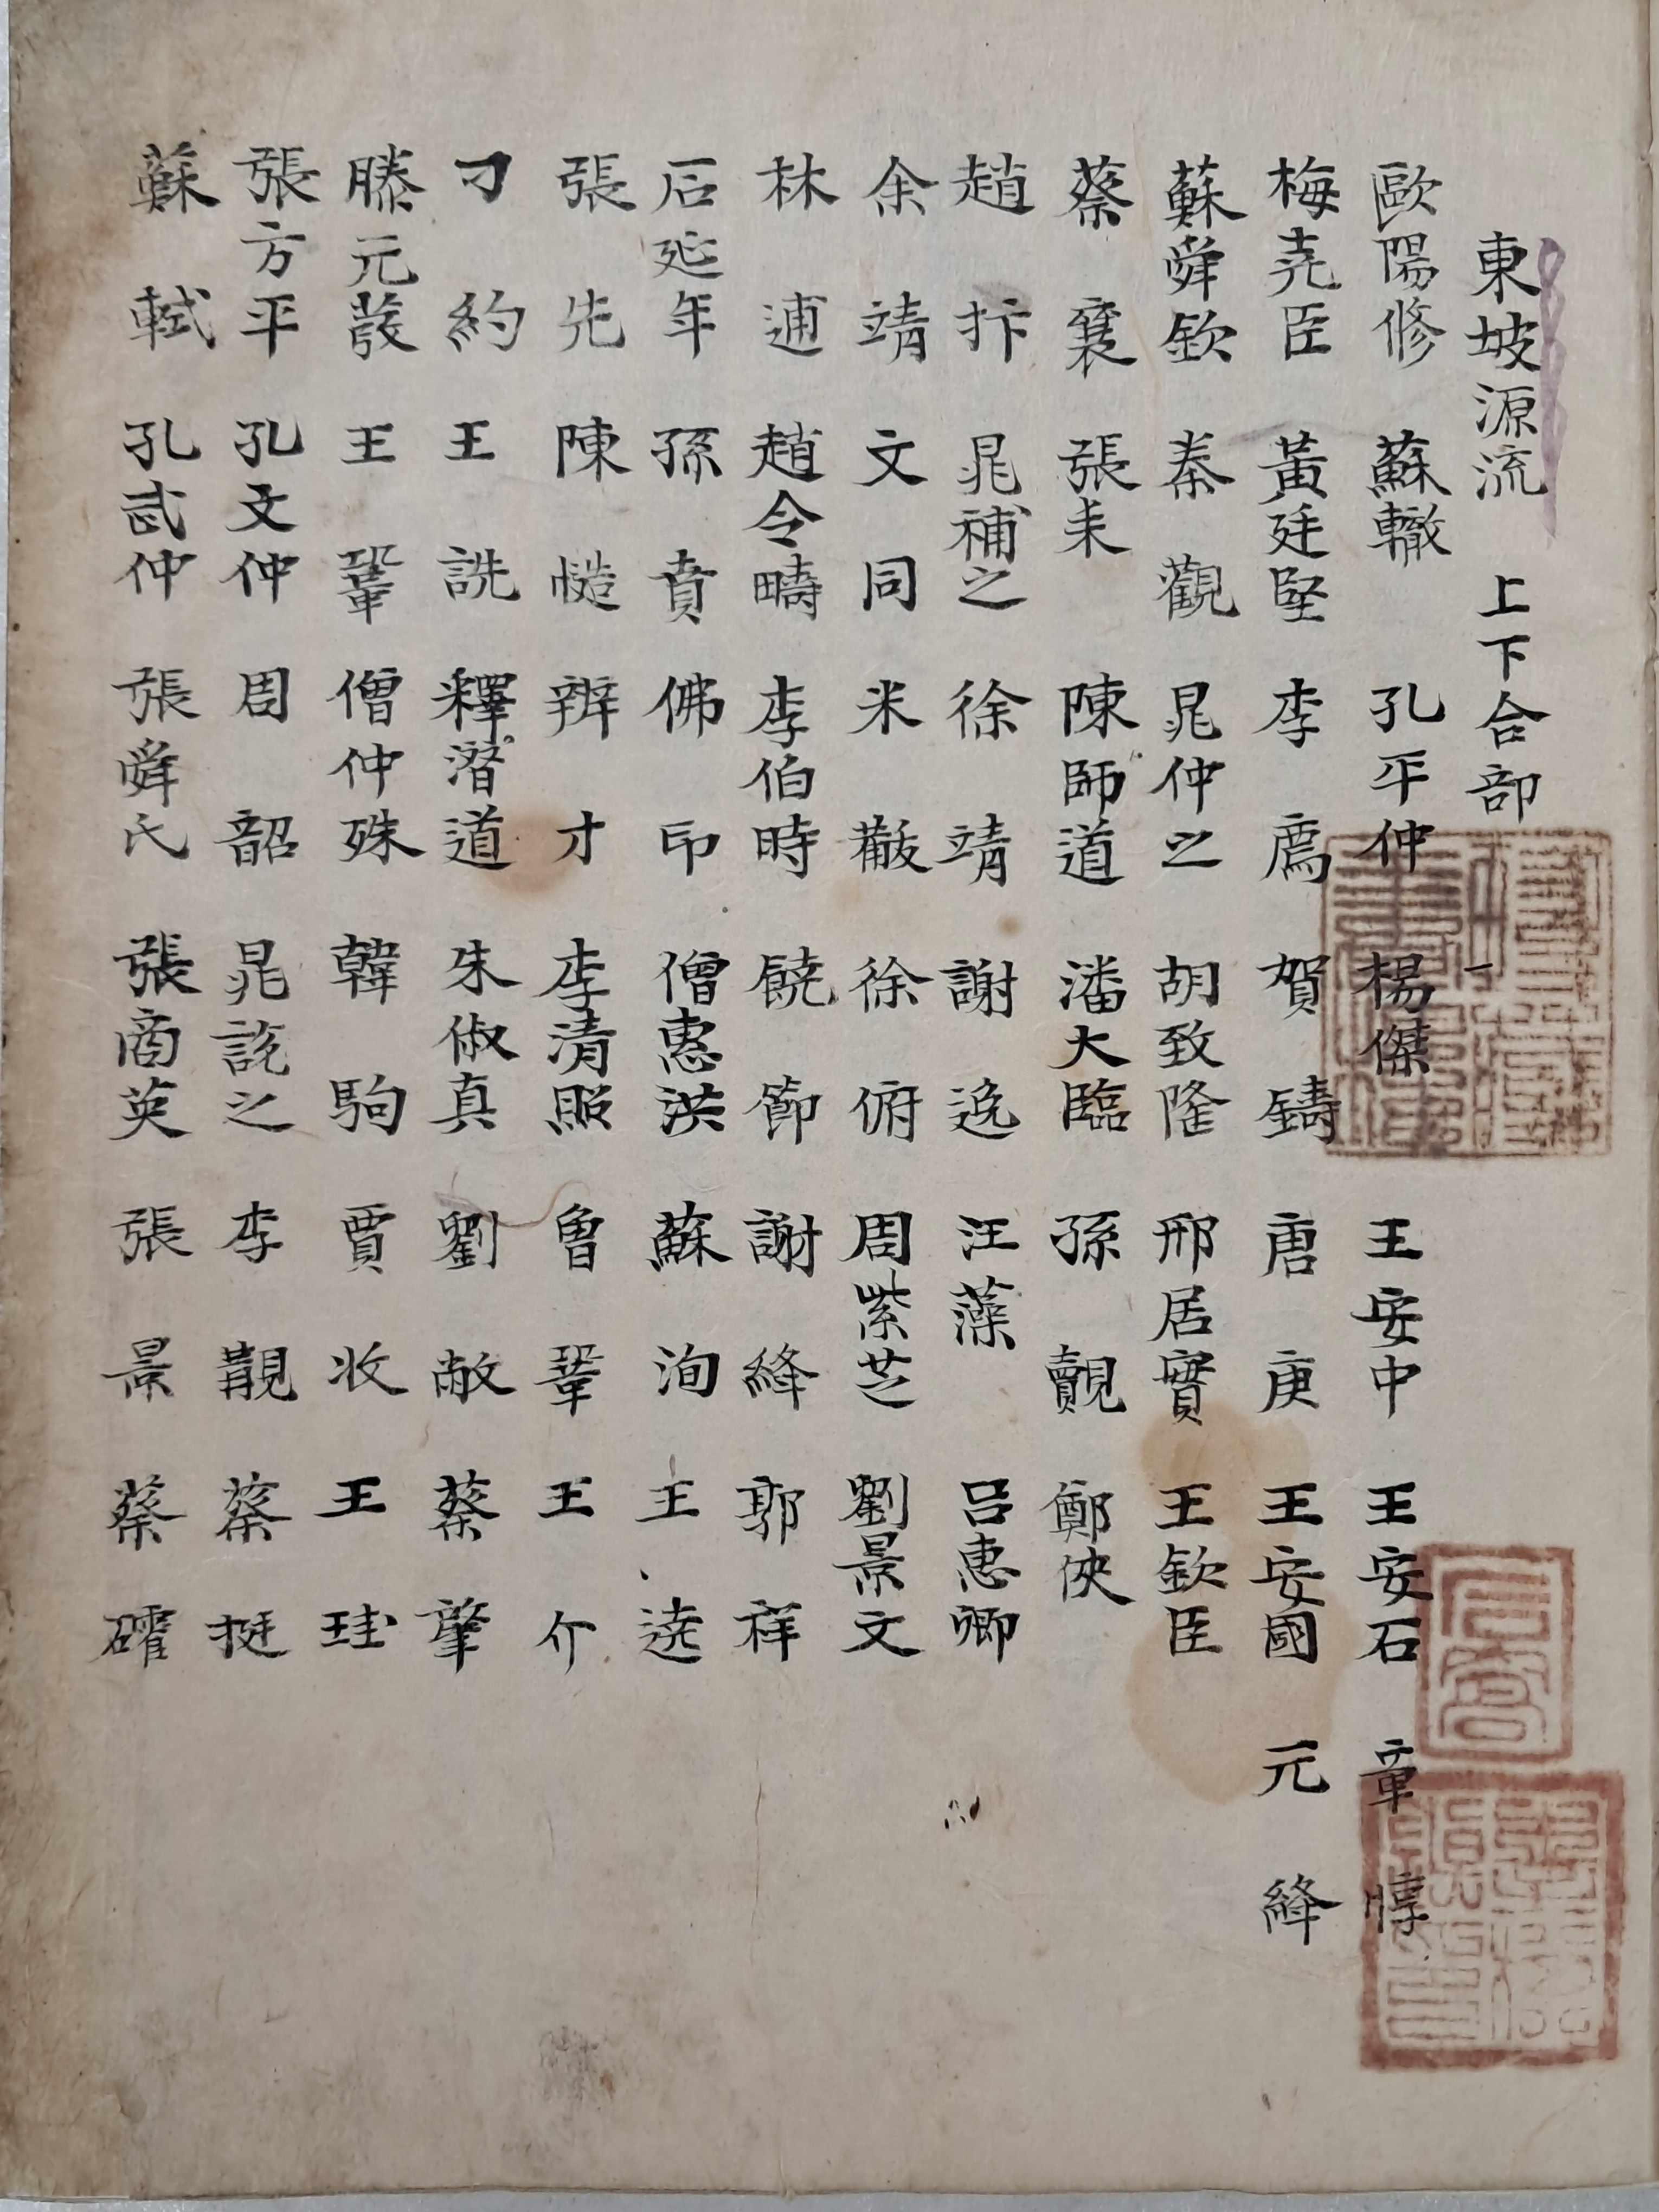 東坡源流 上下合部 一
歐陽修 蘇轍 孔平仲 楊傑 王安中 王安石 章惇
梅堯臣 黃廷堅 李廌 賀鑄 唐庚 王安國 元絳
蘇舜欽 秦觀 晁仲之 胡致隆 邢居實 王欽臣
蔡襄 張耒 陳師道 潘大臨 孫覿 鄭俠
趙抃 晁補之 徐靖 謝逸 汪藻 呂惠卿
余靖 文同 米黻 徐俯 周紫芝 劉景文
林逋 趙令疇 李伯時 饒節 謝絳 郭祥
石延年 孫賁 佛印 僧惠洪 蘇洵 王逵
張先 陳慥 辨才 李清照 曾鞏 王介
刁約 王詵 釋潛道 朱俶真 劉敞 蔡肇
滕元發 王鞏 僧仲殊 韓駒 賈收 王珪
張方平 孔文仲 周韶 晁說之 李覯 蔡挺
蘇軾 孔武仲 張舜民 張商英 張景 蔡確